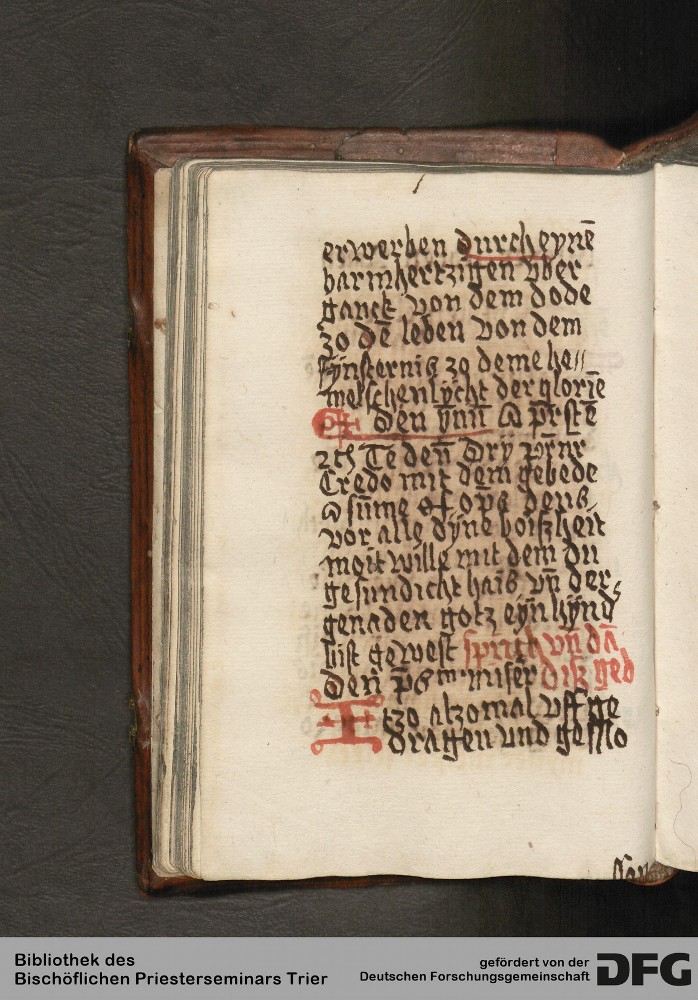 erwerben durch eynē
barmhertzigen vber
ganck von dem dode
zo dē leben von dem
fÿnsternis zo deme he⸗
melschen lycht der glorie
den ÿnn
Te den drÿ
Credo mit dem gebede
deus
vor alle dÿne boiszheit
moit wille mit dem du
gesundicht hais vn̄ der⸗
genaden gotz eyn kÿnd
bist gewest sprich vn̄ dā
den ps miser disz geb
Itzo alzomal vff ge
dragen und geslo
Bibliothek des
Bischöflichen Priesterseminars Trier
gefördert von der
Deutschen Forschungsgemeinschaft DFG